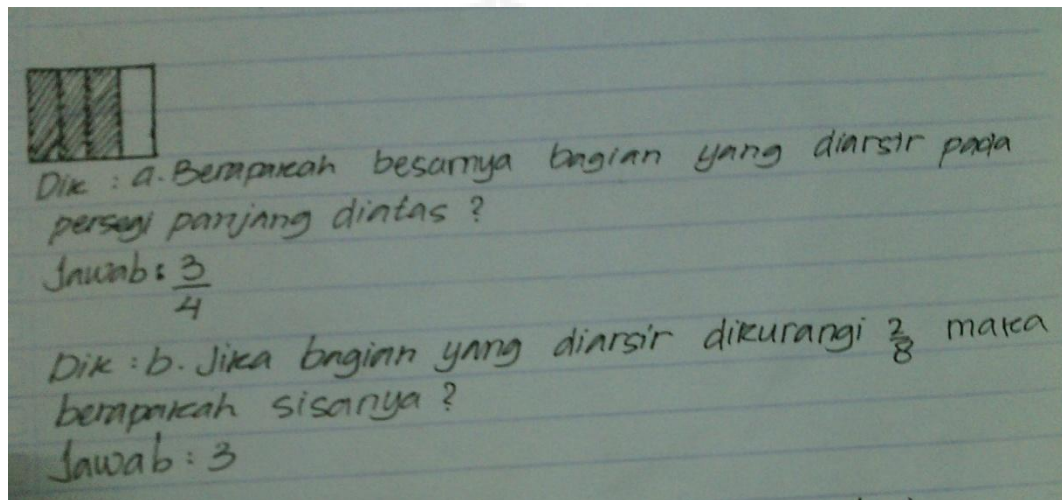 Dik : a. Berapakah besarnya bagian yang diarsir pada
persegi panjang diatas ?
Jawab : 3/4
Dik : b. Jika bagian yang diarsir dikurangi 2/8 maka
berapakah sisanya ?
Jawab : 3